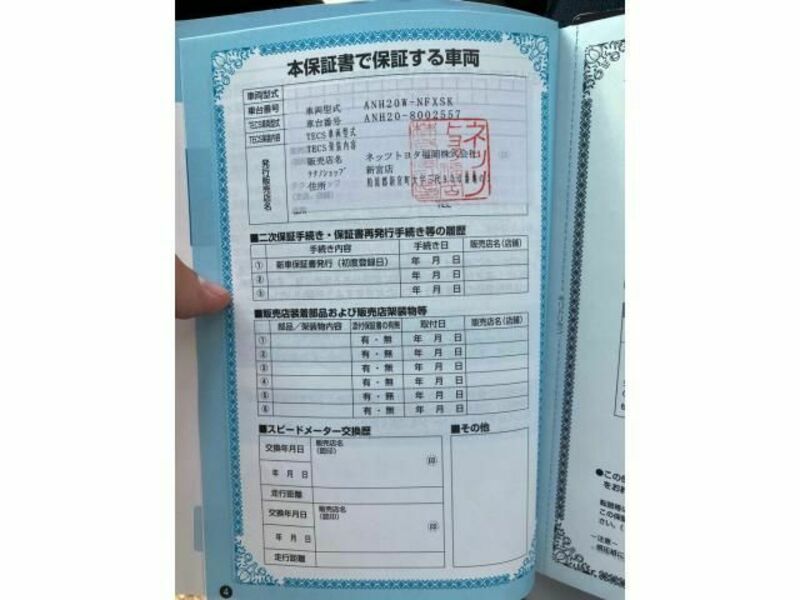 本保証書で保証する車両
車両型式
車台番号
TECS車両型式
TECS架装内容
発行販売店名
車両型式 ANH20W-NFXSK
車台番号 ANH20-8002557
TECS車両型式
TECS架装内容
販売店名 ネッツトヨタ福岡株式会社
テクノショップ 新宮店
住所 粕屋郡新宮町大字三代
TEL
■二次保証手続き・保証書再発行手続き等の履歴
手続き内容 手続き日 販売店名(店舗)
① 新車保証書発行(初度登録日) 年 月 日
② 年 月 日
③ 年 月 日
■販売店装着部品および販売店架装物等
部品/架装物内容 添付保証書の有無 取付日 販売店名(店舗)
① 有・無 年 月 日
② 有・無 年 月 日
③ 有・無 年 月 日
④ 有・無 年 月 日
⑤ 有・無 年 月 日
⑥ 有・無 年 月 日
■スピードメーター交換歴
交換年月日 販売店名
(認印)
印
年 月 日
走行距離
交換年月日 販売店名
(認印)
印
年 月 日
走行距離
■その他
4
●この保
をお
転居等の
この保証
さい。(
-注意-